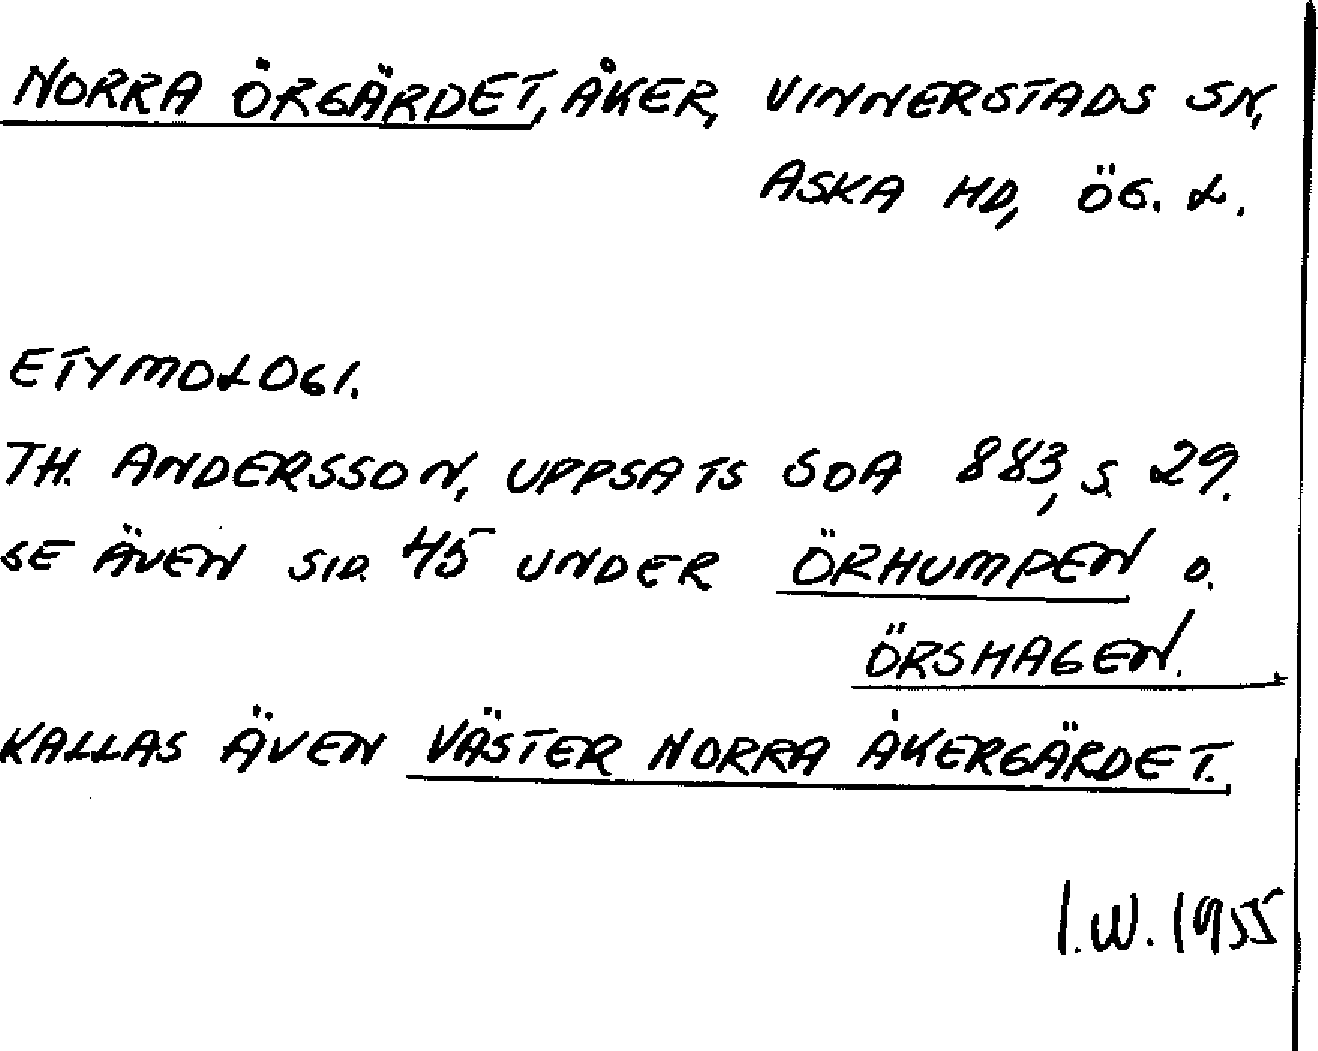 NORRA ÖRGÄRDET, ÅKER, VINNERSTADS SN,
ASKA HD, ÖG. L.
ETYMOLOGI.
TH. ANDERSSON, UPPSATS SOA 883, S. 29.
SE ÄVEN SID. 45 UNDER ÖRHUMPEN O.
ÖRSHAGEN.
KALLAS ÄVEN VÄSTER NORRA ÅKERGÄRDET.
I.W. 1955